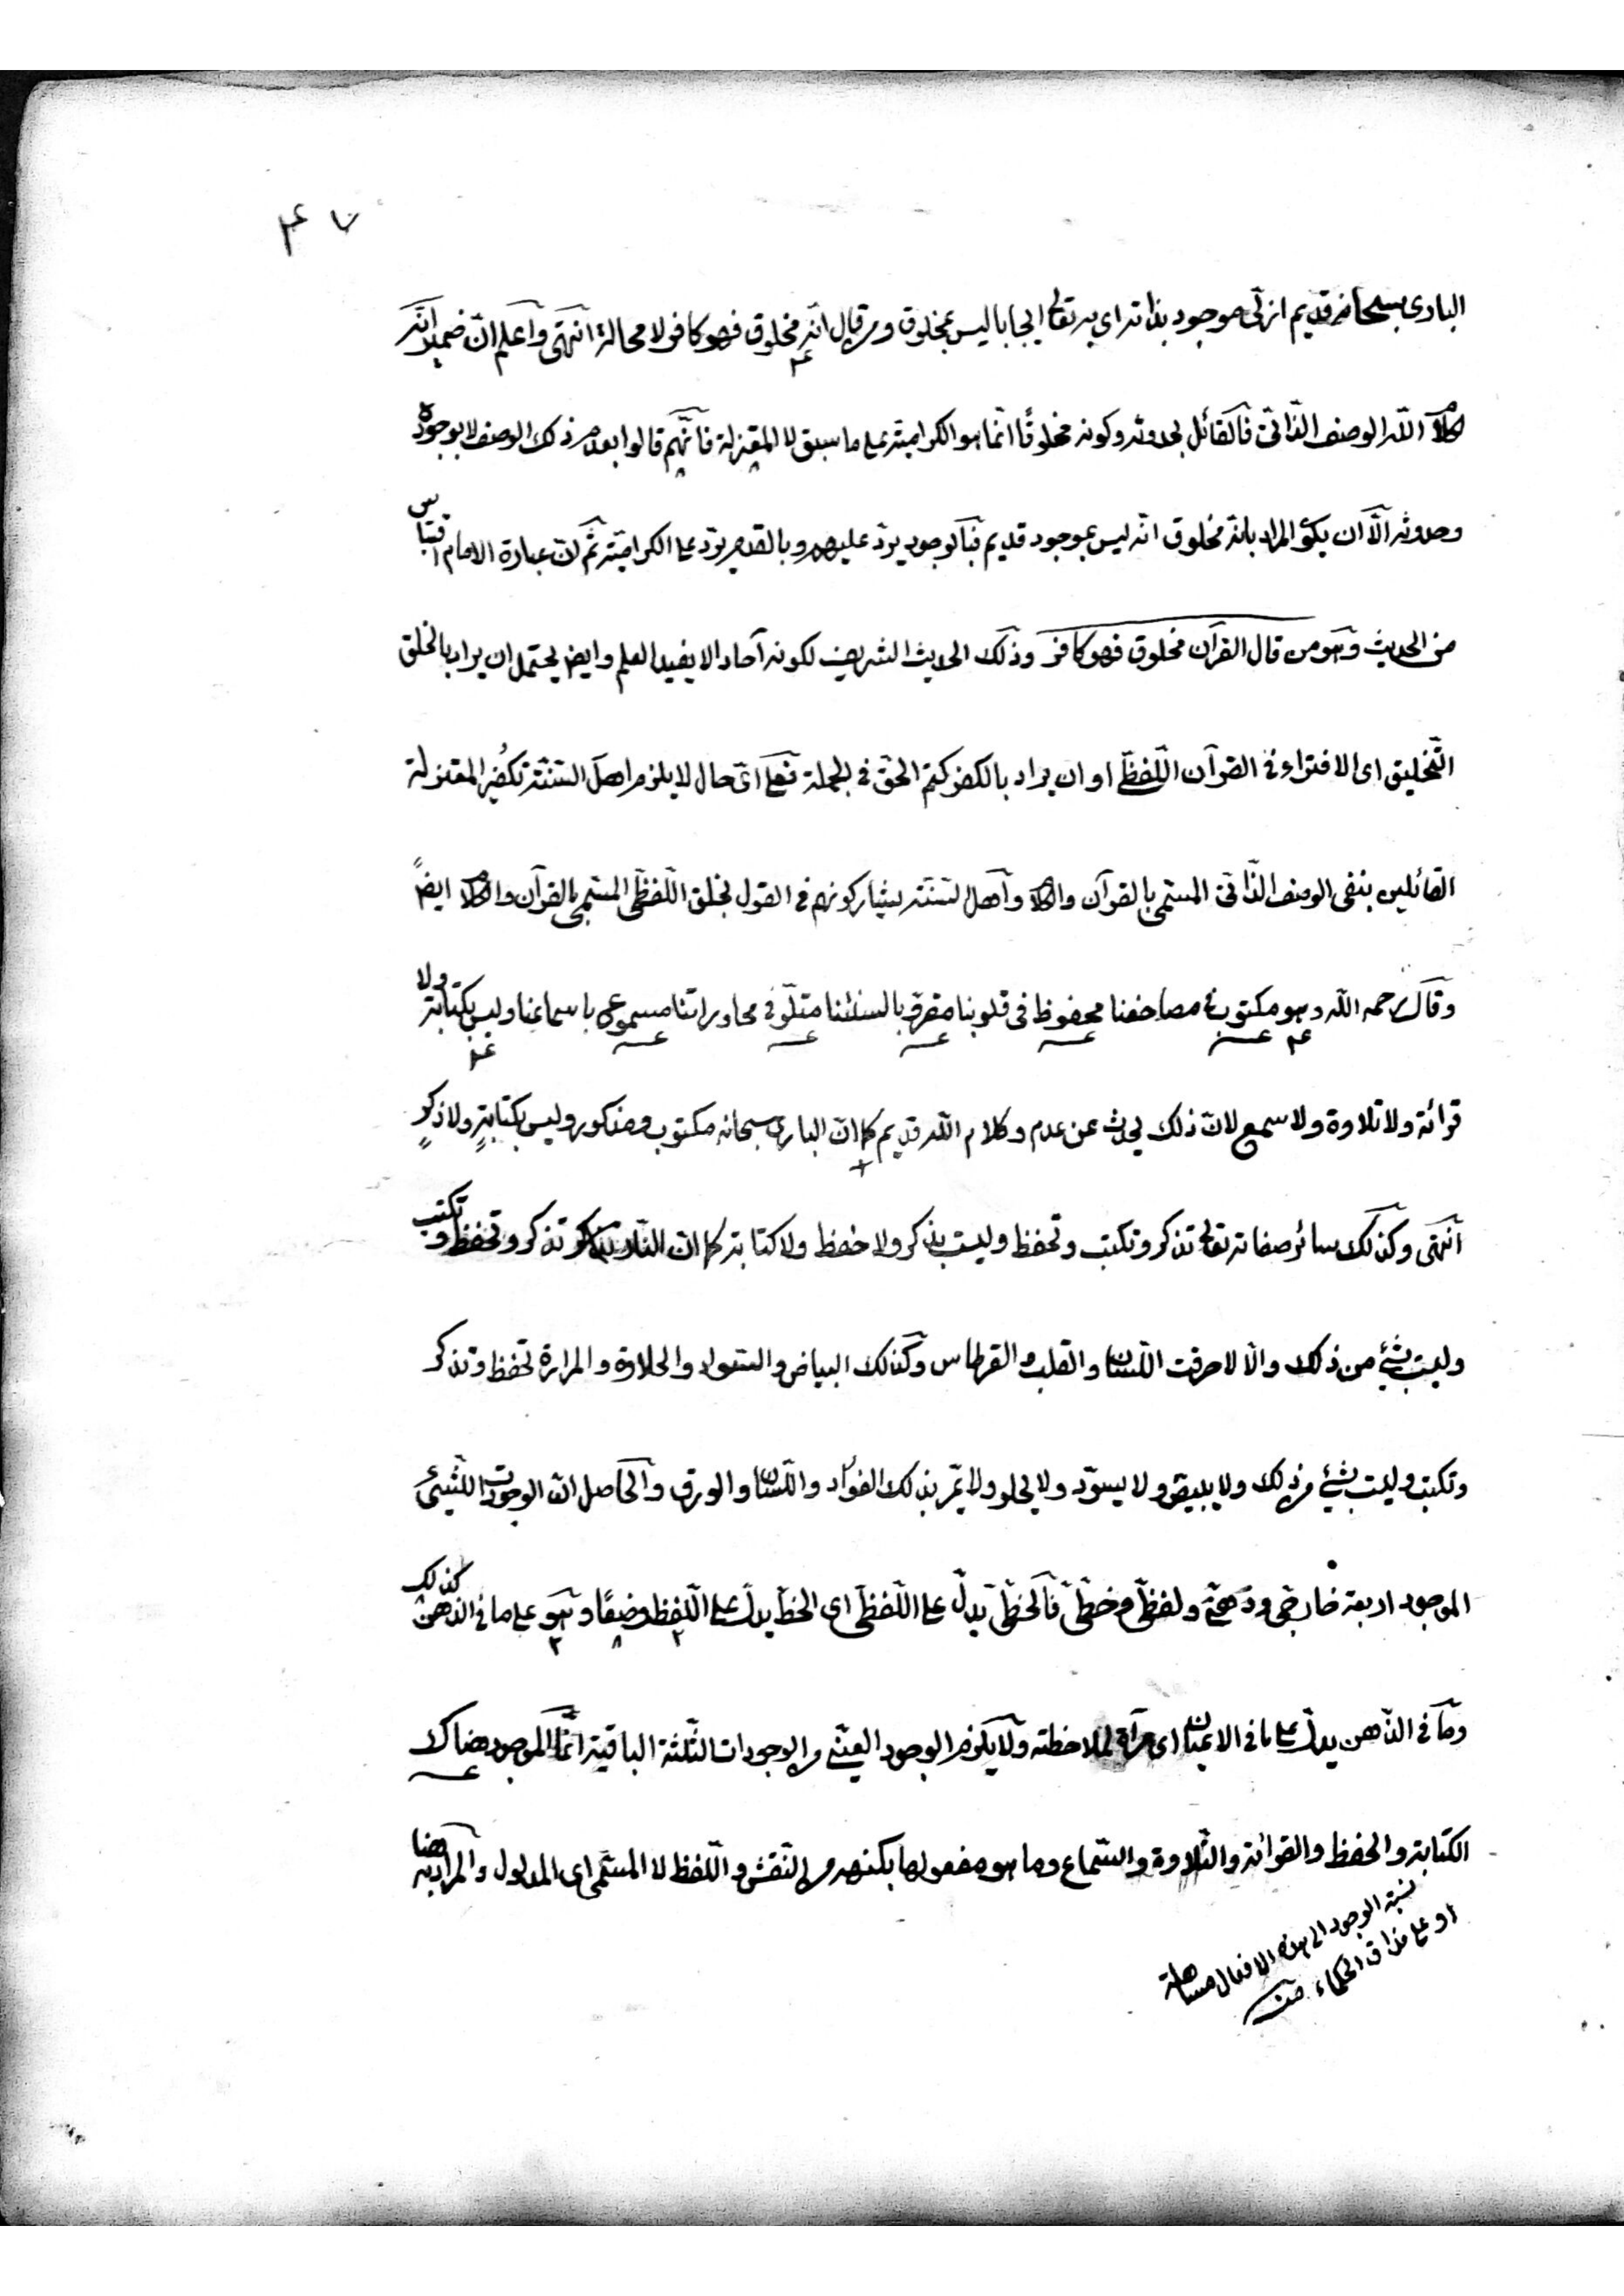 ٤٧
البارى سبحانه قديم ازلى موجود بذاته اى به تعالى ايجابا ليس بمخلوق ومن قال انه مخلوق فهو كافر لا محالة انتهى واعلم ان ضمير انه
كلام الله الوصف الذاتى فالقائل بحدوثه وكونه مخلوقا انما هو الكرامية على ما سبق لا المعتزلة فانهم قالوا بعدم ذلك الوصف لا بوجوده
وحدوثه الا ان يكون المراد بانه مخلوق انه ليس بموجود قديم فبالوجود يرد عليهم وبالقدم يرد على الكرامية ثم ان عبارة الامام اقتباس
من الحديث وهو من قال القرآن مخلوق فهو كافر وذلك الحديث الشريف لكونه آحادا لا يفيد العلم وايضا يحتمل ان يراد بالخلق
التخليق اى الافتراء وفى القرآن اللفظى او ان يراد بالكفر كتم الحق فى الجملة فعلى اى حال لا يلزم اهل السنة تكفير المعتزلة
القائلين بنفى الوصف الذاتى المسمى بالقرآن والكلام واهل السنة يشاركونهم فى القول بخلق اللفظى المسمى بالقرآن والكلام ايضاً
وقال رحمه الله وهو مكتوب فى مصاحفنا محفوظ فى قلوبنا مقروء بالسنتنا متلو فى محاورباتنا مسموع باسماعنا وليس بكتابة ولا
قرائة ولا تلاوة ولا سمع لان ذلك يحدث عن عدم وكلام الله قديم كما ان البارى سبحانه مكتوب ومذكور وليس بكتابةٍ ولا ذكرٍ
انتهى وكذلك سائر صفاته تعالى تذكر وتكتب وتحفظ وليست بذكر ولا حفظ ولا كتابة كما ان النار تذكر وتحفظ وتكتب
وليست بشئ من ذلك والا لاحرقت اللسان والقلب والقرطاس وكذلك البياض والسواد والحلاوة والمرارة تحفظ وتذكر
وتكتب وليست بشئ من ذلك ولا يبيض ولا يسود ولا يحلو ولا يمر بذلك الفؤاد واللسان والورق والحاصل ان الوجودات للشئ
الموجود اربعة خارجى وذهنى ولفظى وخطى فالخطى يدل على اللفظى اى الخط يدل على اللفظ وضعًا وهو على ما فى الذهن كذلك
وما فى الذهن يدل على ما فى الاعيان اى مرآة لملاحظته ولا يكون الوجود العينى من الوجودات الثلثة الباقية انما الموجود هناك
الكتابة والحفظ والقرائة والتلاوة والسماع وما هو مفعولها بكنهه من النقش واللفظ لا المسمى اى المدلول والمراد به هنا
نسبة الوجود الى هذه الافعال مساهلة
او على مذاق الحكماء منه